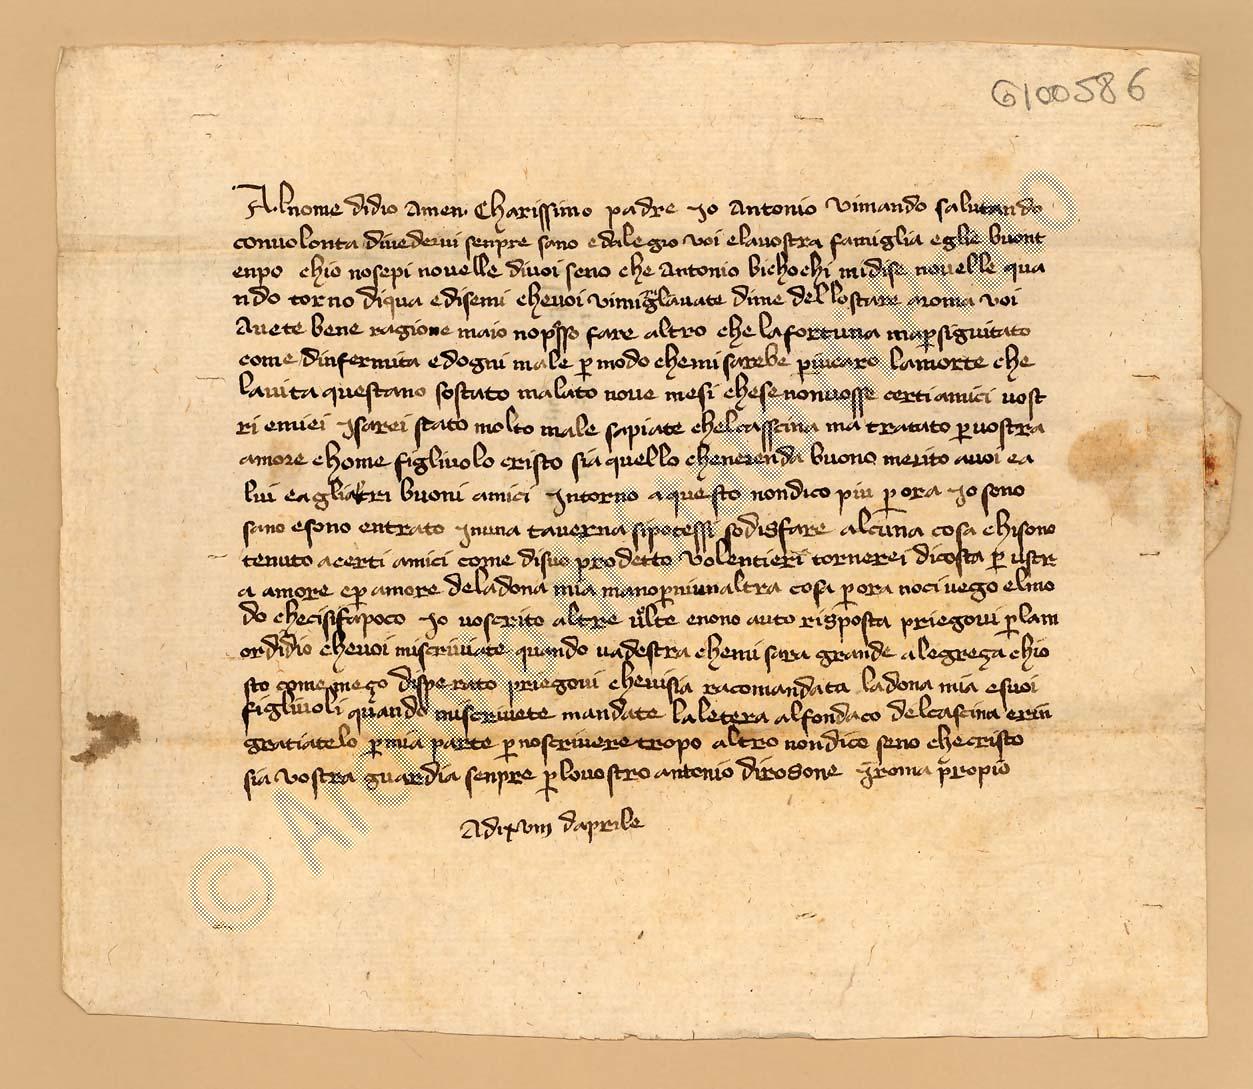 6100586
Alnome didio amen Charissimo padre Io Antonio vimando salutando
convolonta divedervi senpre sano edalegro voi elavostra famiglia eglie buont
enpo chio nosepi novelle divoi seno che Antonio bichochi midise novelle qua
ndo torno diqua edisemi chevoi vimiglavate dime dellostare aroma voi
Avete bene ragione maio noposso fare altro che lafortuna map̱siguitato
come dinfermita edogni male p̱ modo chemi sarebe p̱iucaro lamorte che
lavita questano sostato malato nove mesi chese nonvosse certi amici vost
ri emiei Isarei stato molto male sapiate chelcasscina ma tratato p̱vostra
amore chome figlivolo cristo sia quello chenerenda buono merito avoi ea
lui eaglialtri buoni amici Intorno aquesto nondico piu p̱ ora Io sono
sano esono entrato Inuna taverna sipotessi sodisfare alcuna cosa chisono
tenuto acerti amici come disuo prodetto volentieri tornerei dicosta p̱ vstr
a amore ep̱ amore deladona mia manop̱niunaltra cosa p̱ora nocivego elmo
do checisifapoco Io voscrito altre volte enono auto risposta priegovi p̱lam
ordidio chevoi miscriviate quando vadestra chemi sara grande alegreça chio
sto come meço disperato priegovi chevisia racomandata ladona mia esuoi
figlivoli quando miscrivete mandate laletera alfondaco delcascina erin
gratiatelo p̱mia parte p̱noscrivere tropo altro nondico seno checristo
sia vostra guardia senpre p̱lovostro antonio dirosone Iroma propio
Adixviii daprile
© Arc